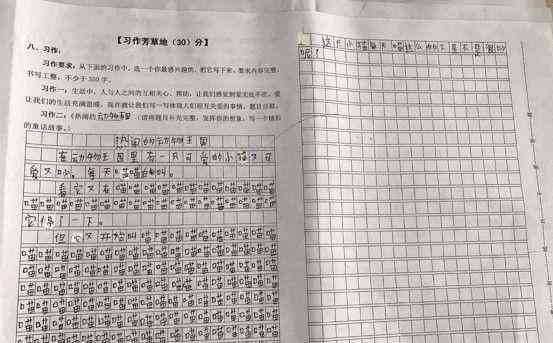 【习作芳草地（30）分】
八、习作。
习作要求：从下面的习作中，选一个你最感兴趣的，把它写下来，要求内容完整，
书写工整，不少于300字。
习作一：生活中，人与人之间的互相关心、帮助，让我们感觉到爱无处不在，爱
让我们的生活充满温暖。现在就让我们写一写体现人们相互关爱的事情。题目自拟。
习作二：《热闹的动物王国》（请将题目补充完整，发挥你的想象，写一个精彩
的童话故事。）
热闹的动物王国
在动物王国里有一只可爱的小猫又可
爱又叫。每天喵喵的叫。
看它又在喵喵喵喵喵喵喵喵喵喵喵
喵喵喵喵喵喵喵喵喵喵喵喵喵喵喵喵
它停了一下。
但它又开始叫喵喵喵喵喵喵喵喵喵
喵喵喵喵喵喵喵喵喵喵喵喵喵喵喵喵
喵喵喵喵喵喵喵喵喵喵喵喵喵喵喵喵
喵喵喵喵喵喵喵喵喵喵喵喵喵喵喵喵
喵喵喵喵喵喵喵喵喵喵喵喵喵喵喵喵
喵喵喵喵喵喵喵喵喵喵喵喵喵喵喵喵
喵喵喵喵喵喵喵喵喵喵喵喵喵喵喵喵
这只小猫每天喵这么的工是不是很吵
呢？